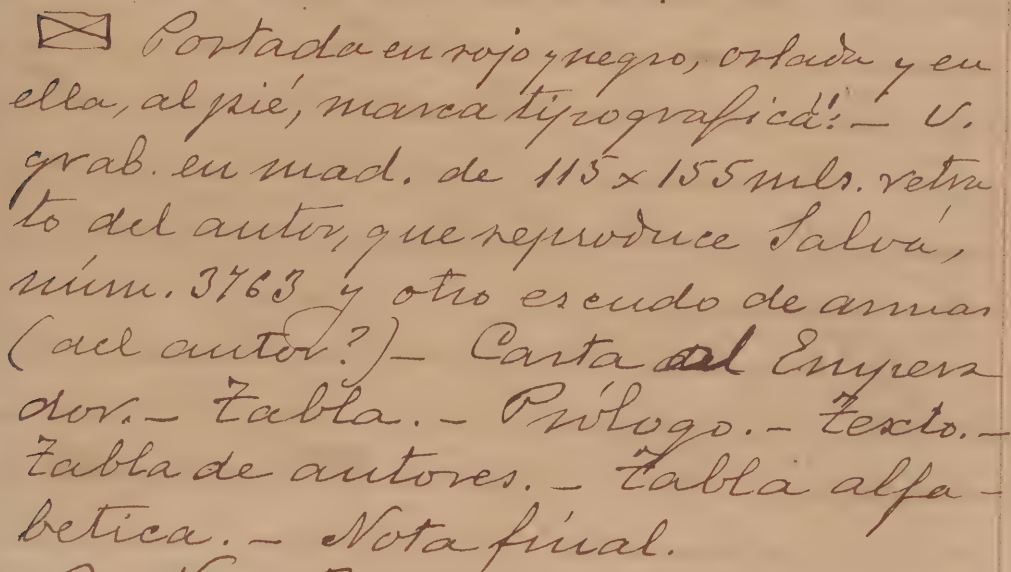 Portada en rojo y negro, orlada y en
ella, al pié, marca tipografica.— V.
grab. en mad. de 115 x 155 mls. retra
to del autor, que reproduce Salvá,
núm. 3763 y otro escudo de armas
(del autor?) — Carta del Empera
dor. — Tabla. — Prólogo. — Texto. —
Tabla de autores. — Tabla alfa-
betica. — Nota final.